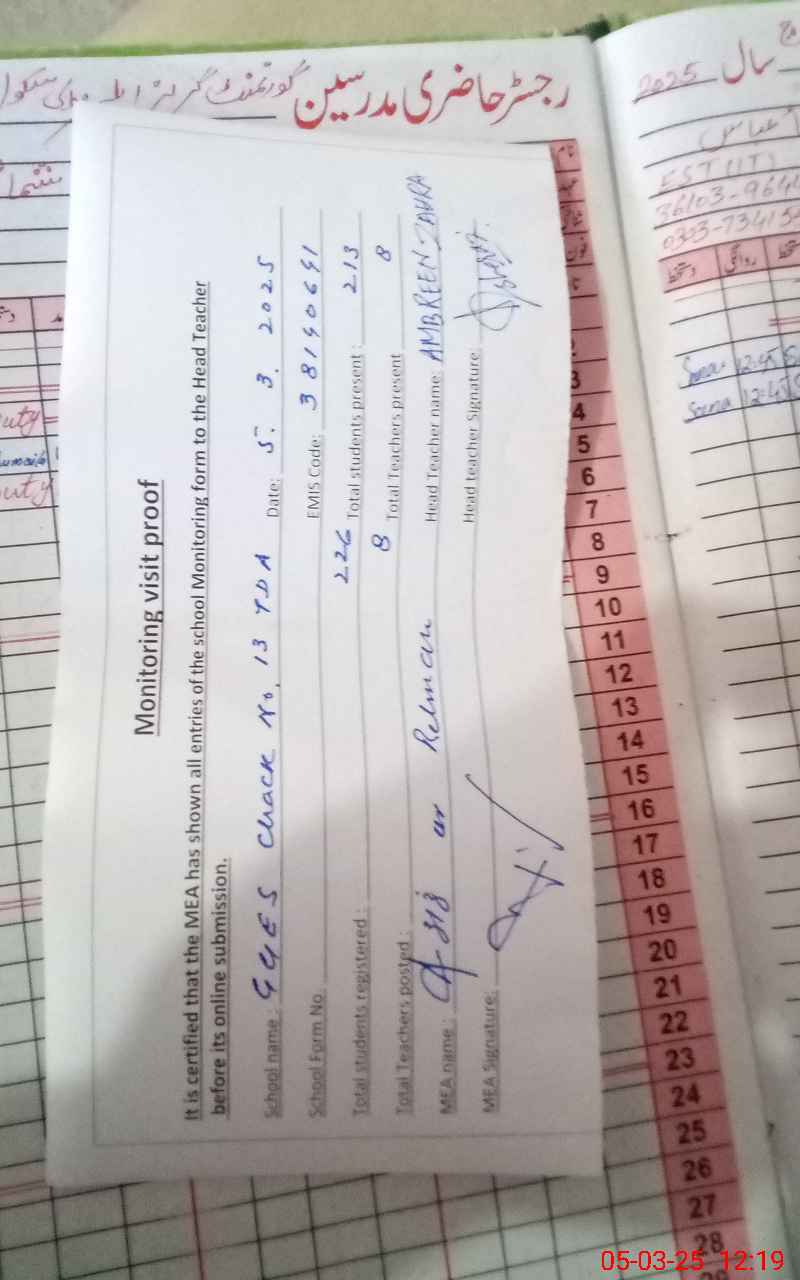 رجسٹر حاضری مدرسین گورنمنٹ گرلز
سال 2025
عباس
EST (IT)
36103-964
0303-73415
Monitoring visit proof
It is certified that the MEA has shown all entries of the school Monitoring form to the Head Teacher
before its online submission.
School name : GGES Chack No. 13 TDA Date: 5. 3. 2025
School Form No. EMIS Code: 38190691
Total students registered : 226 Total students present : 213
Total Teachers posted : 8 Total Teachers present 8
MEA name : ur Rehman Head Teacher name: AMBREEN ZAHRA
MEA Signature: Head teacher Signature:
نام
دستخط روانگی دستخط
uty
uty
12:45
12:45
3
4
5
6
7
8
9
10
11
12
13
14
15
16
17
18
19
20
21
22
23
24
25
26
27
28
05-03-25 12:19